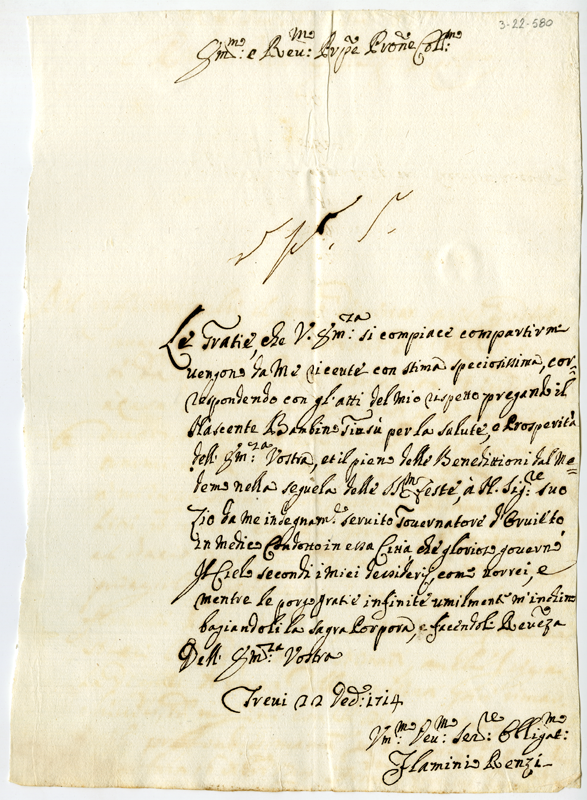 3-22-580
Em.mo e Rev.mo Prpe Prõne Coll.mo
Le Gratie, che V. Em.za si compiace compartirme
uengono da me riceute con stima speciosissima, cor=
respondendo con gl'atti del mio rispetto pregando il
Nascente Bambino Giesù per la salute, e Prosperità
dell' Em.za Vostra, et il pieno delle Benedittioni dal Me=
demo nella seguela delle feste, à M. Sig.re suo
Zio da me indegnam.te seruito Gouernatore d'Oruieto
in Medico Condotto in essa Città, che glorioso gouernò
Il Cielo secondi i miei desiderij, come vorrei, e
mentre le porgo gratie infinite umilmente m'inchino
bagiandoli la sagra Porpora, e facendoli Reuẽza
Dell' Em.za Vostra
Treui 22 Dec: 1714
Vm.mo Deu.mo Ser.re Obligat.mo
Flaminio Renzi